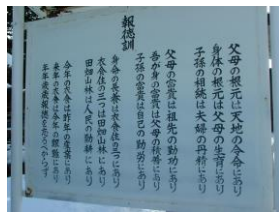 報徳訓
父母の根元は天地の令命にあり
身体の根元は父母の生育にあり
子孫の相続は夫婦の丹精にあり
父母の富貴は祖先の勤功にあり
吾が身の富貴は父母の積善にあり
子孫の富貴は自己の勤労にあり
身命の長養は衣食住の三つにあり
衣食住の三つは田畑山林にあり
田畑山林は人民の勤耕にあり
今年の衣食は昨年の産業にあり
来年の衣食は今年の艱難にあり
年年歳歳報徳を忘るべからず